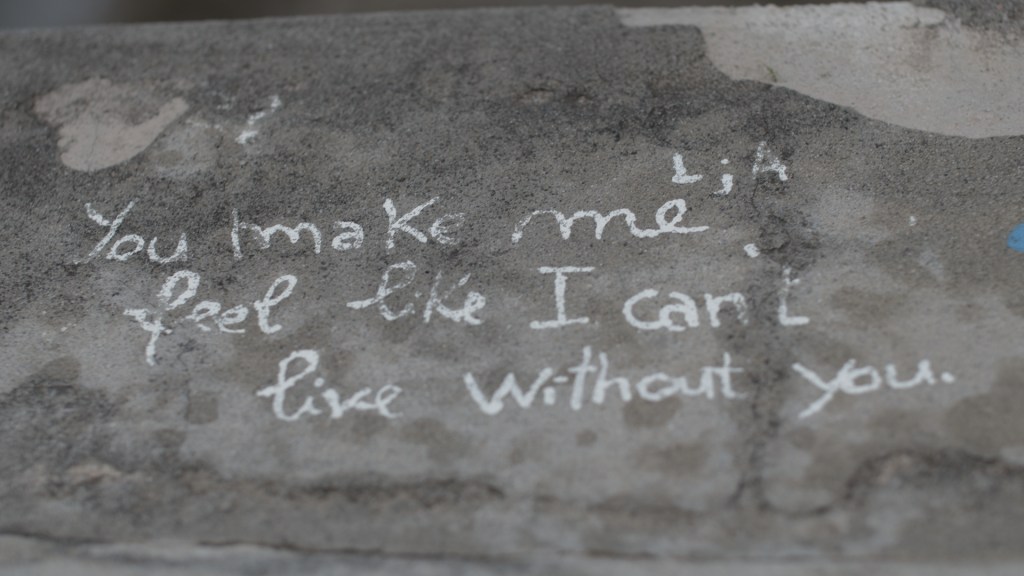 L;A
You make me
feel like I can't
live without you.